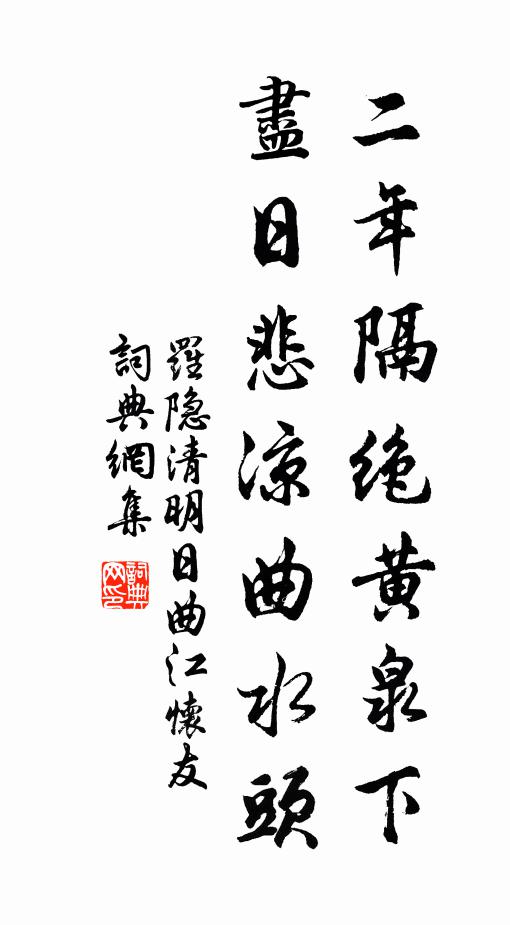 二年隔絶黄泉下
盡日悲涼曲水頭
羅隐清明日曲江懷友
詞典網集
詞典网印